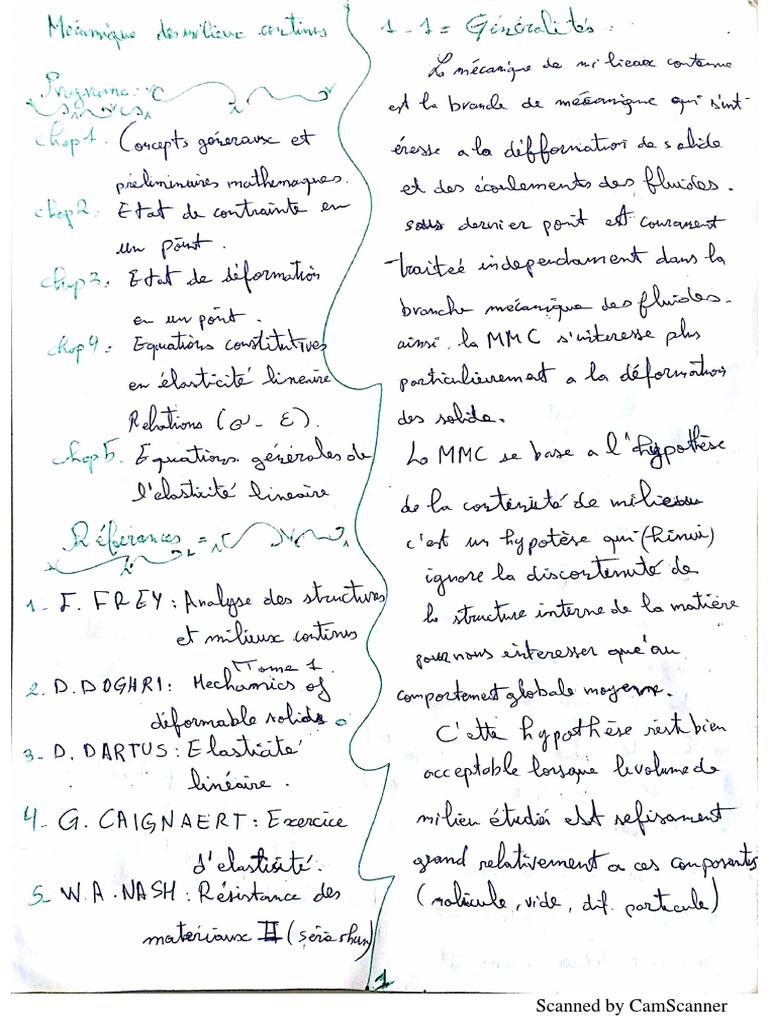 Mécanique des milieux continus
Programme :
chap1. Concepts généraux et
préliminaires mathemaques.
chap2. Etat de contrainte en
un point.
chap3. Etat de déformation
en un point.
chap4. Equations constitutives
en élasticité lineaire
Relations (σ - ε).
chap5. Equations générales de
l'elasticité lineaire
Références =
1- F. FREY : Analyse des structures
et milieux continus
Tome 1.
2. D. DOGHRI : Mechanics of
déformable solids.
3- D. DARTUS : Elasticité
linéaire.
4- G. CAIGNAERT : Exercice
d'elasticité.
5- W.A. NASH : Résistance des
materiaux II (série
1-1 = Généralités :
La mécanique de milieaux contenue
est la brande de mécanique qui s'int-
éresse a la défformation de solide
et des écoulements des fluides.
dernier point est courament
traiteé independament dans la
branche mécanique des fluides.
ainsi, la MMC s'interesse plus
particulierement a la déformation
des solide.
La MMC se base a l'hypothèse
de la conteniuté de milieu
c'est un hypotèse qui
ignore la discontenuité de
la structure interne de la matière
pour nous interesser que au
comportement globale moyenne.
C'ette hypothèse rest bien
acceptable lorsque le volume de
milieu étudiér est sefisament
grand relativement a ces composantes
(molicule, vide, dif. particule)
1
Scanned by CamScanner